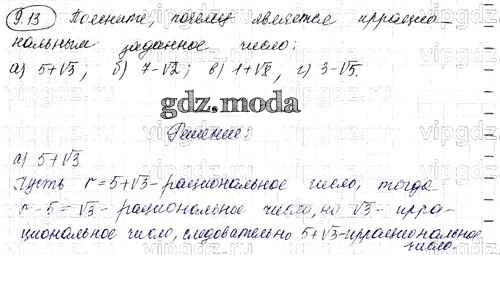 9.13 Поясните, почему является иррацио-
нальным заданное число:
а) 5+√3; б) 7-√2; в) 1+√7, г) 3-√5.
gdz.moda
Решение:
а) 5+√3
Пусть r=5+√3 - рациональное число, тогда
r-5=√3 - рациональное число, но √3 - ирра-
циональное число, следовательно 5+√3 - иррациональное
число.